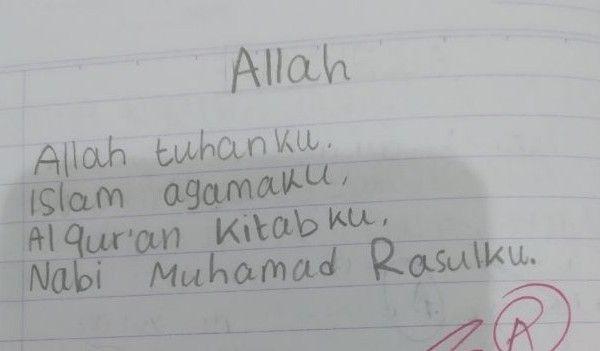 Allah
Allah tuhanku.
Islam agamaku,
Al qur'an Kitabku,
Nabi Muhamad Rasulku.
A